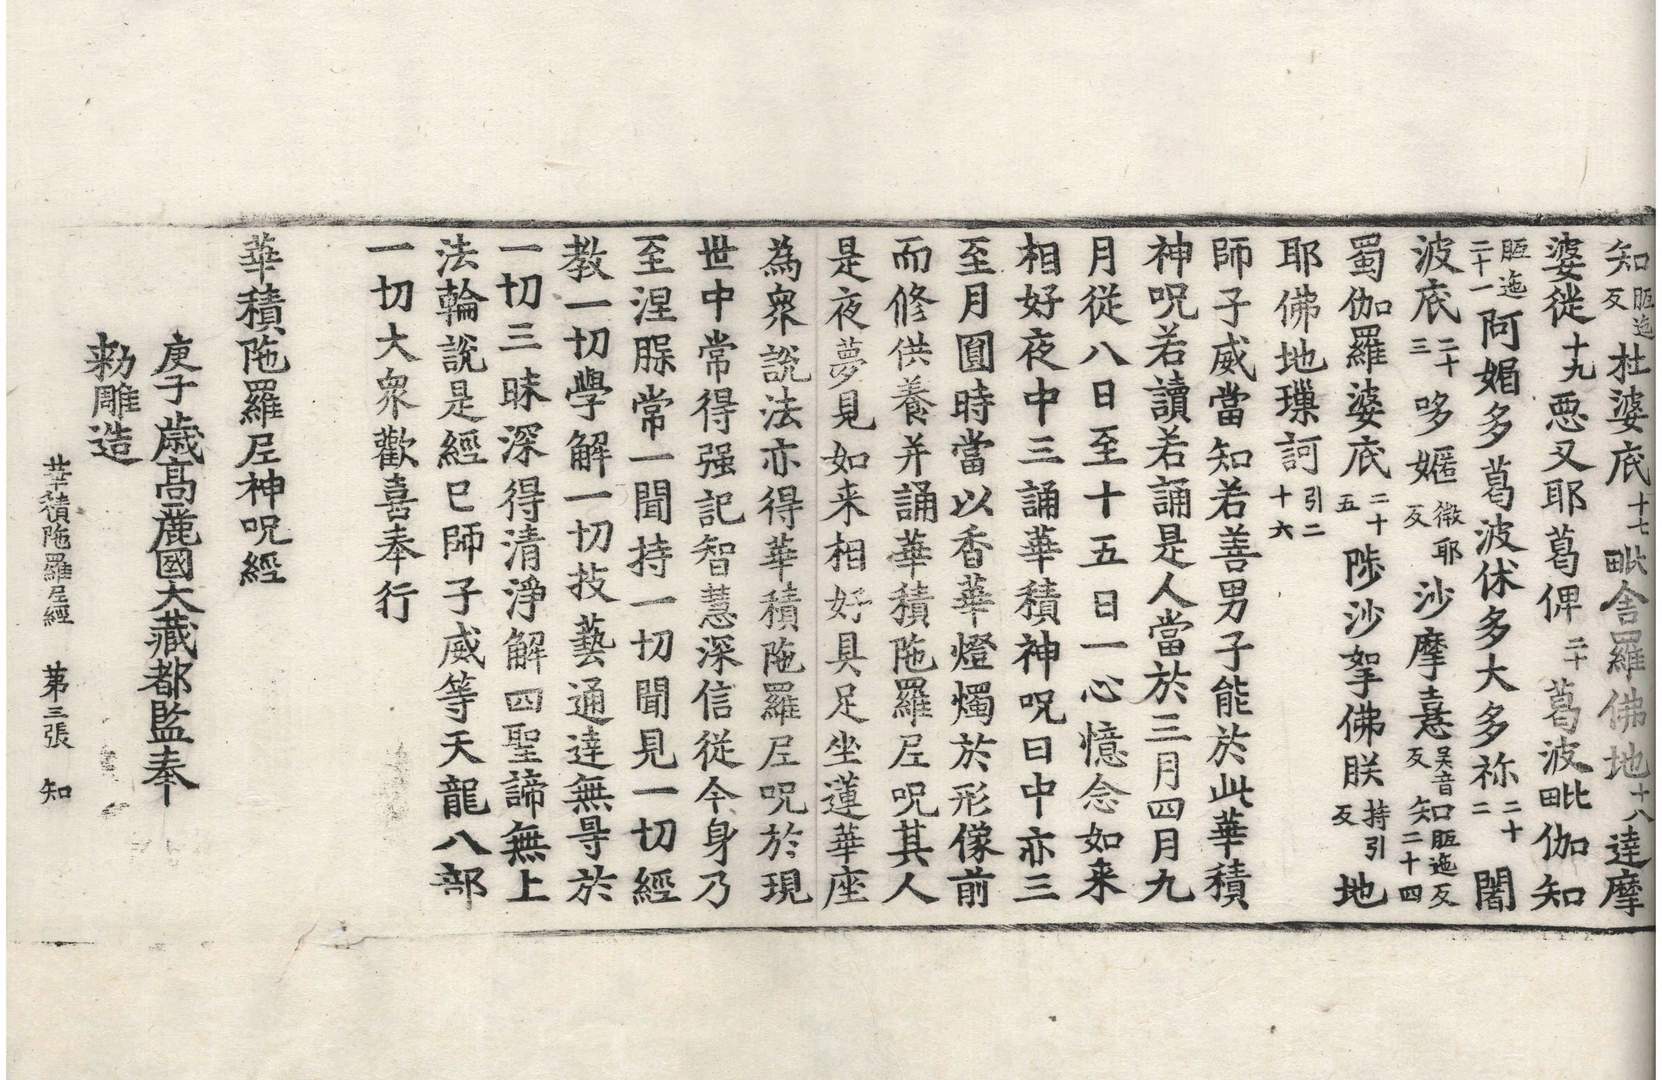 知㡳迤反杜婆底十七毗舍羅佛地十八達摩
婆徙十九惡叉耶葛俾二十葛波毗伽知
㡳迤二十一阿媚多葛波㤄多大多祢二十二闍
波底二十三哆𡟎微耶反沙摩憙吴音反知㡳迤反二十四
蜀伽羅婆底二十五陟沙拏佛朕持引反地
耶佛地㻮訶引二十六
師子威當知若善男子能於此華積
神呪若讀若誦是人當於三月四月九
月從八日至十五日一心憶念如來
相好夜中三誦華積神呪日中亦三
至月圓時當以香華燈燭於形像前
而修供養并誦華積陁羅尼呪其人
是夜夢見如来相好具足坐蓮華座
為衆說法亦得華積陁羅尼呪於現
世中常得强記智慧深信從今身乃
至涅脲常一聞持一切聞見一切經
教一切學解一切技藝通達無㝵於
一切三昧深得清淨解四聖諦無上
法輪說是經已師子威等天龍八部
一切大衆歡喜奉行
華積陁羅尼神呪經
庚子歲高麗國大藏都監奉
勑雕造
華積陁羅尼經 第三張 知